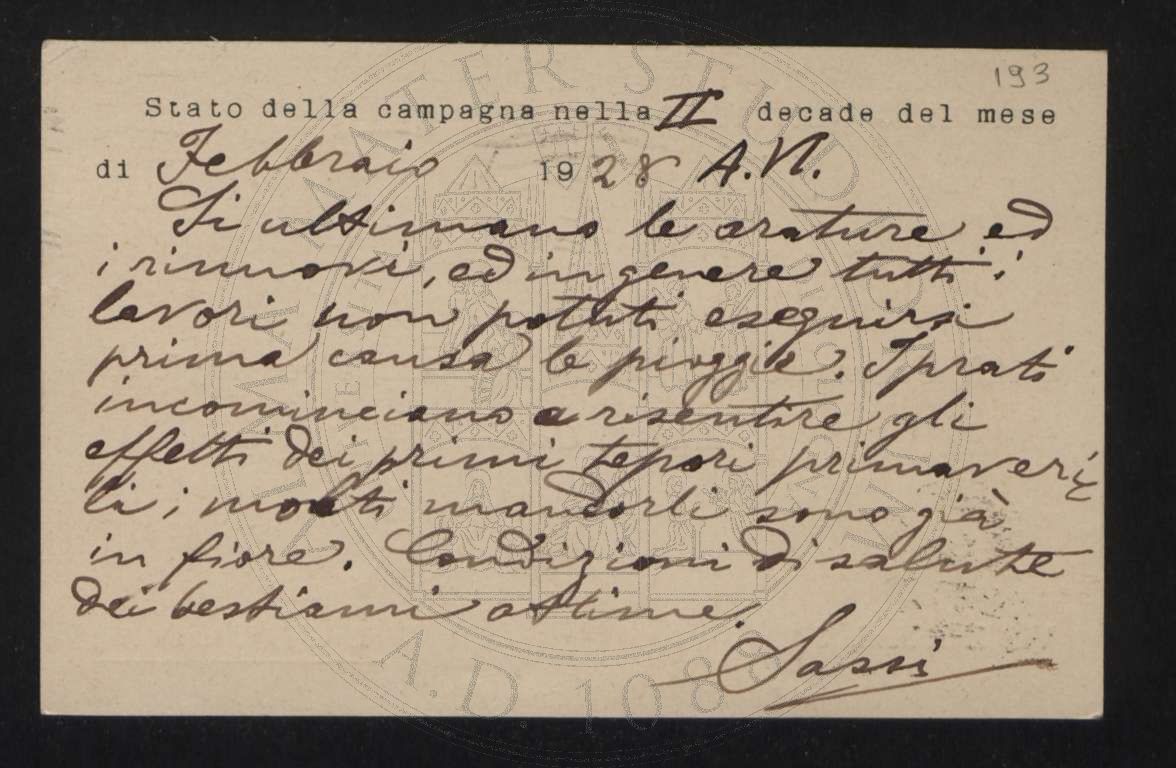 193
Stato della campagna nella II decade del mese
di Febbraio 1928 A.VI.
Si ultimano le arature ed
i rinnovi, ed in genere tutti i
lavori non potuti eseguirsi
prima causa le pioggie. I prati
incominciano a risentire gli
effetti dei primi tepori primaveri
li; molti mandorli sono già
in fiore. Condizioni di salute
dei bestiami ottime.
Sassi
ALMA MATER STUDIORUM
A.D. 1088